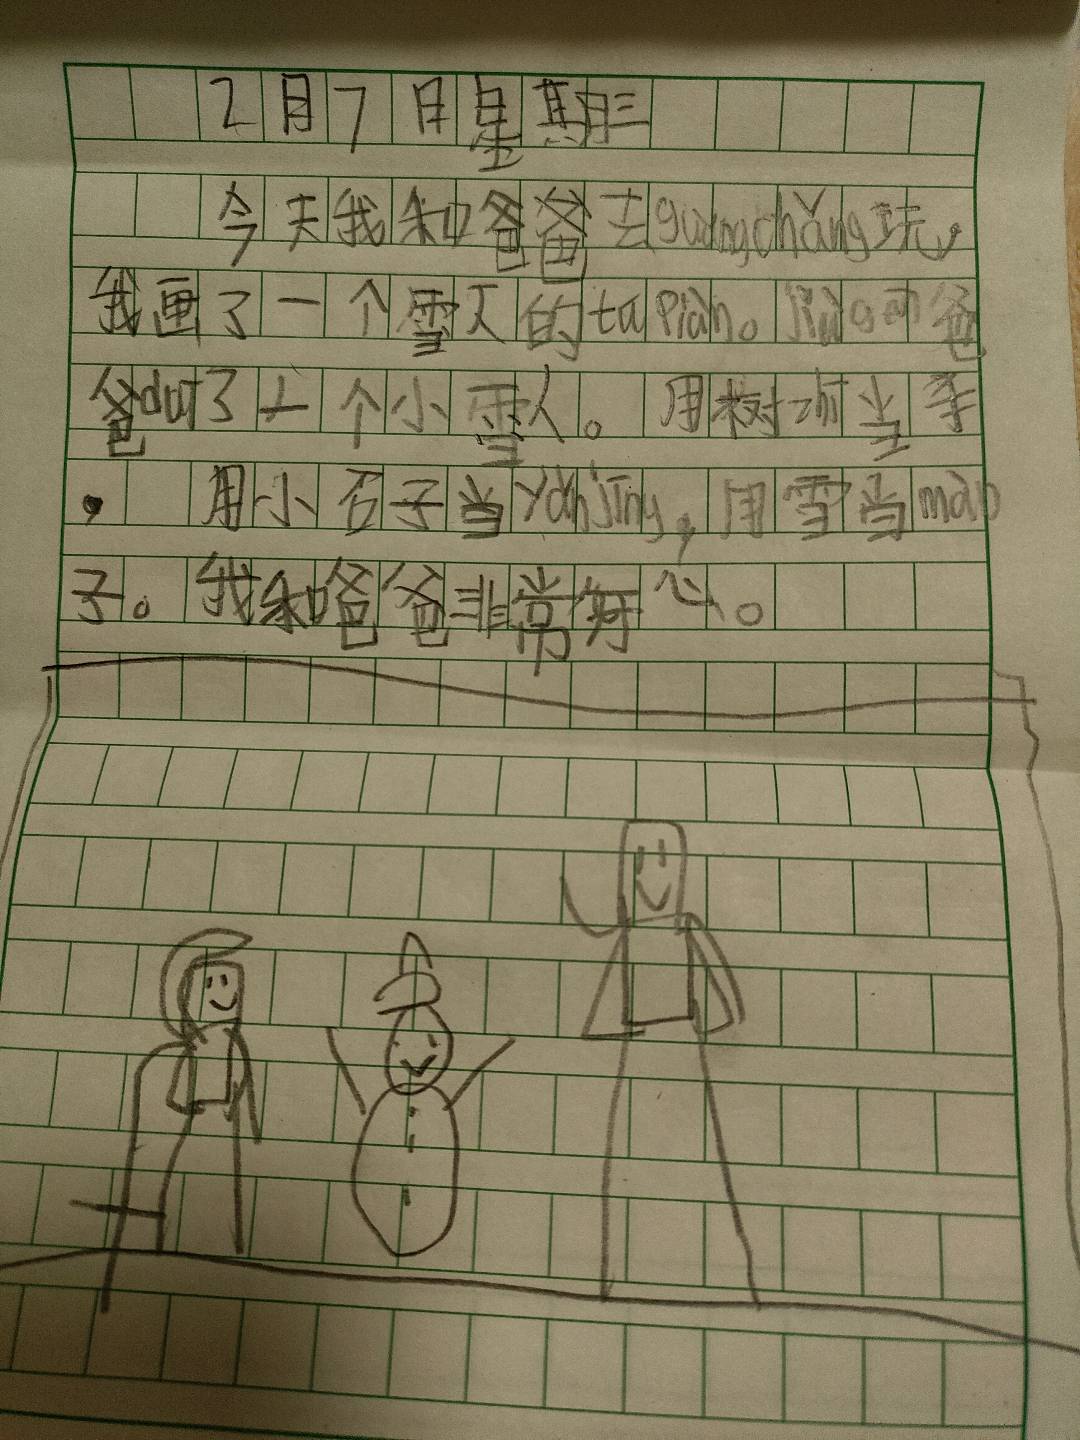 2月7日星期三
今天我和爸爸去guǎngchǎng玩,
我画了一个雪人的tu piàn。jiē 爸
爸 了一个小雪人。用树 当手
. 用小石子当yǎnjīng,用雪当mào
子。我和爸爸非常好心。